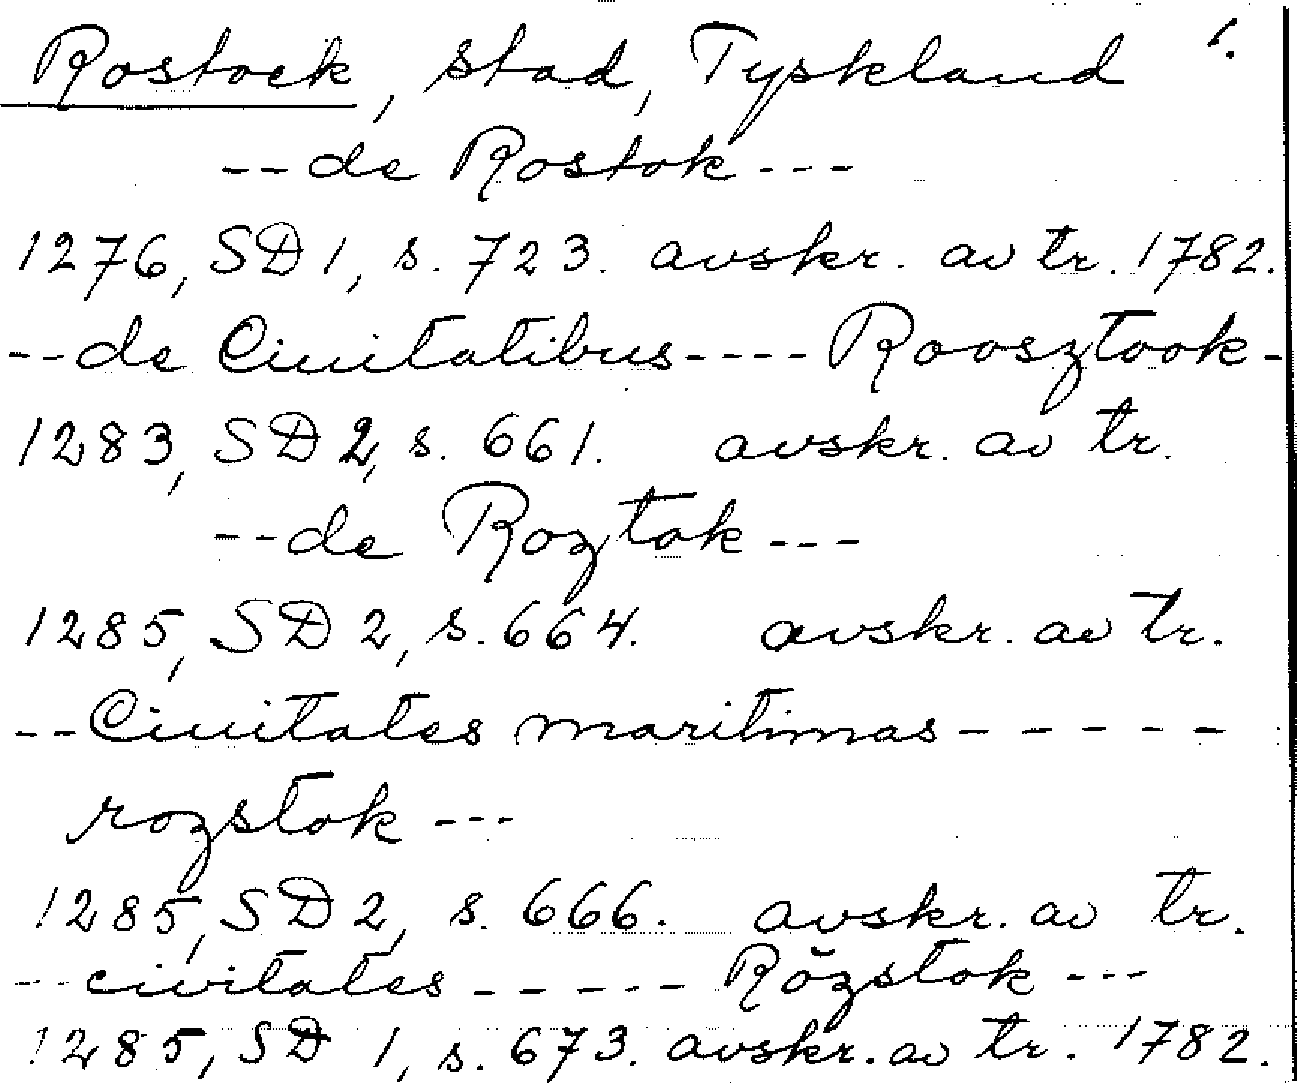 Rostock, stad, Tyskland 1.
--de Rostok---
1276, SD1, s. 723. avskr. av tr. 1782.
--de Ciuitatibus----Roosztook-
1283, SD2, s. 661. avskr. av tr.
--de Roztok---
1285, SD2, s. 664. avskr. av tr.
--Ciuitates maritimas-----
rozstok---
1285, SD2, s. 666. avskr. av tr.
--civitates-----Rŏzstok---
1285, SD 1, s. 673. avskr. av tr. 1782.